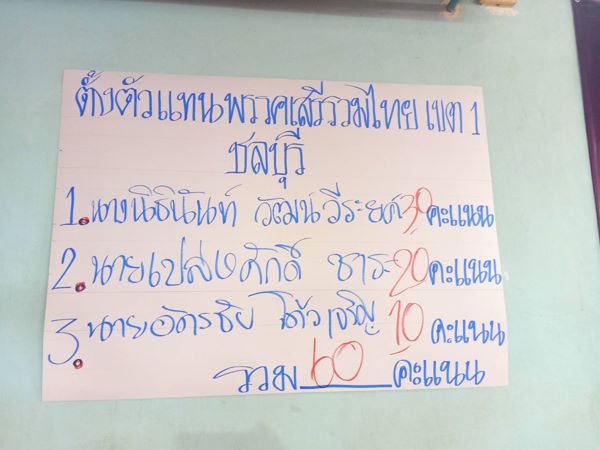 ตั้งตัวแทนพรรคเสรีรวมไทย เขต 1
ชลบุรี
1. นางนิธินันท์ วัฒน์วีระยศ 30 คะแนน
2. นาย ศักดิ์ ชาระ 20 คะแนน
3. นายอัครชัย โต๊วเจริญ 10 คะแนน
รวม 60 คะแนน